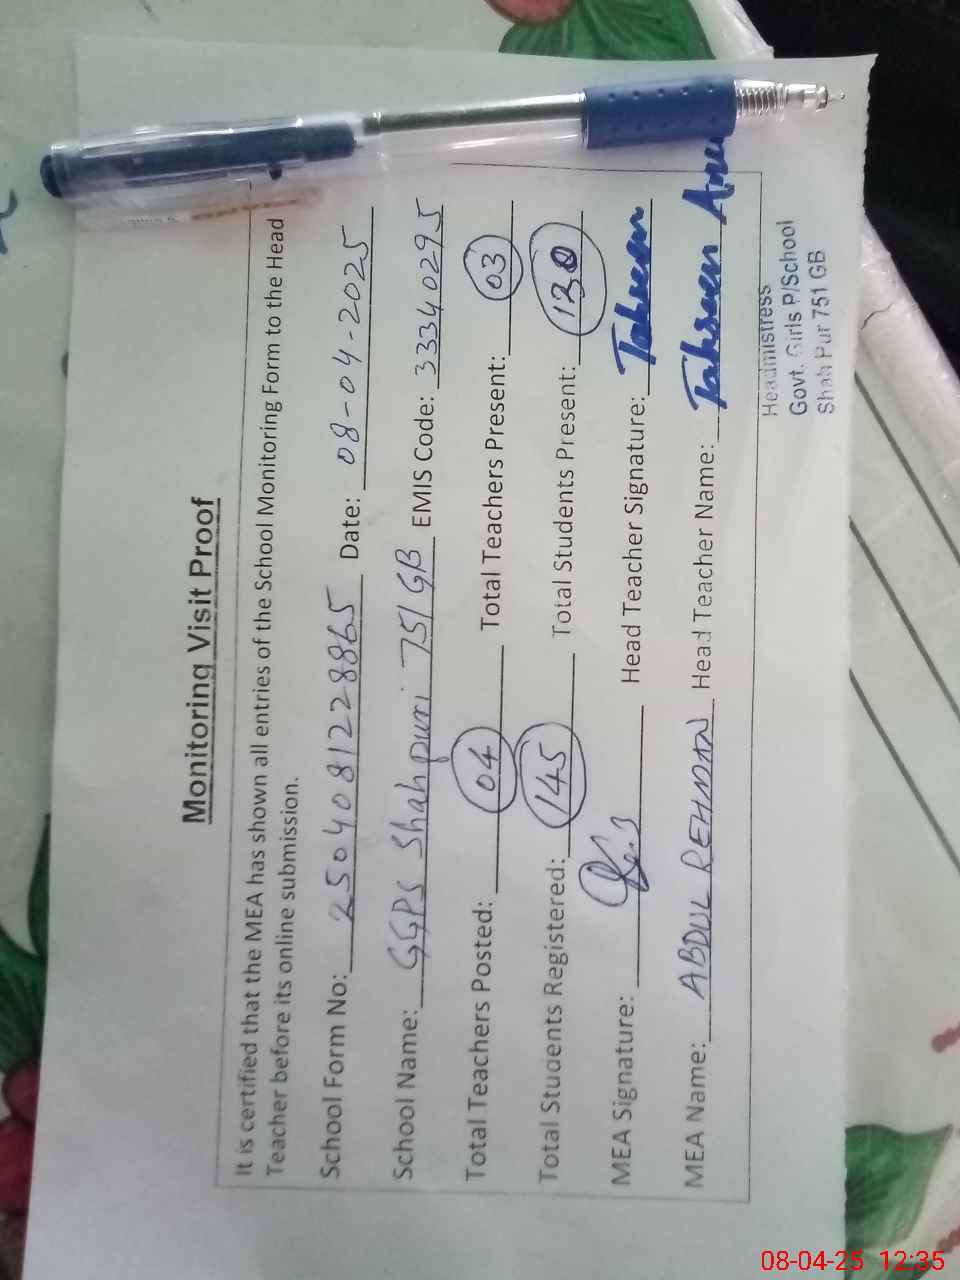 Monitoring Visit Proof
It is certified that the MEA has shown all entries of the School Monitoring Form to the Head
Teacher before its online submission.
School Form No: 2504081228865 Date: 08-04-2025
School Name: GGPS Shahpuri 751 GB EMIS Code: 33340295
Total Teachers Posted: 04 Total Teachers Present: 03
Total Students Registered: 145 Total Students Present:
MEA Signature: Head Teacher Signature: Tahseen
MEA Name: ABDUL REHMAN Head Teacher Name: Tahseen
Headmistress
Govt. Girls P/School
Shah Pur 751 GB
08-04-25 12:35